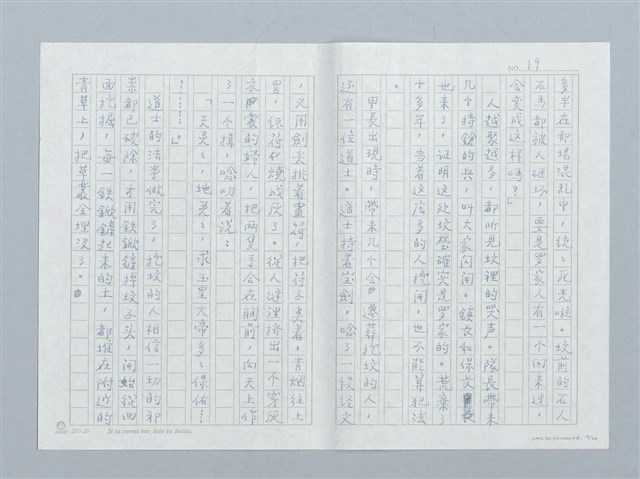 NO. 19
多半在那場混乱中，統々死光啦。坟前的石人
石馬都被人砸坏，要是羅家人有一个回来过，
会变成这样嗎？」
人越聚越多，都听見坟裡的哭声。隊長帶来
几个持鎗的兵，叫大家闪開。鎮長和保長
也来了，证明这处坟塋確实是罗家的。荒棄了
十多年，当着这庅多的人挖開，也不能算犯法
。
甲長出現時，帶来几个会遷葬挖坟的人，
还有一位道士。道士持着宝劍，唸了一段经文
，又用劍尖挑着畫符，把符子点着，青烟往上
冒，纸符燒成灰了。從人缝裡挤出一个穿灰
衣裳的妇人，把兩隻手合在胸前，向天上作
了一个揖，唸叨着说：
「天灵々，地灵々，求玉皇大帝多々保佑…
………」。
道士的法事做完了，挖坟的人相信一切的邪
祟都已被除，才用鉄鍁鏟掉坟子头，開始從四
面挖掘，每一鉄鍁鏟起来的土，都堆在附近的
青草上，把草叢全埋没了。
20×20
It is never too late to learn.